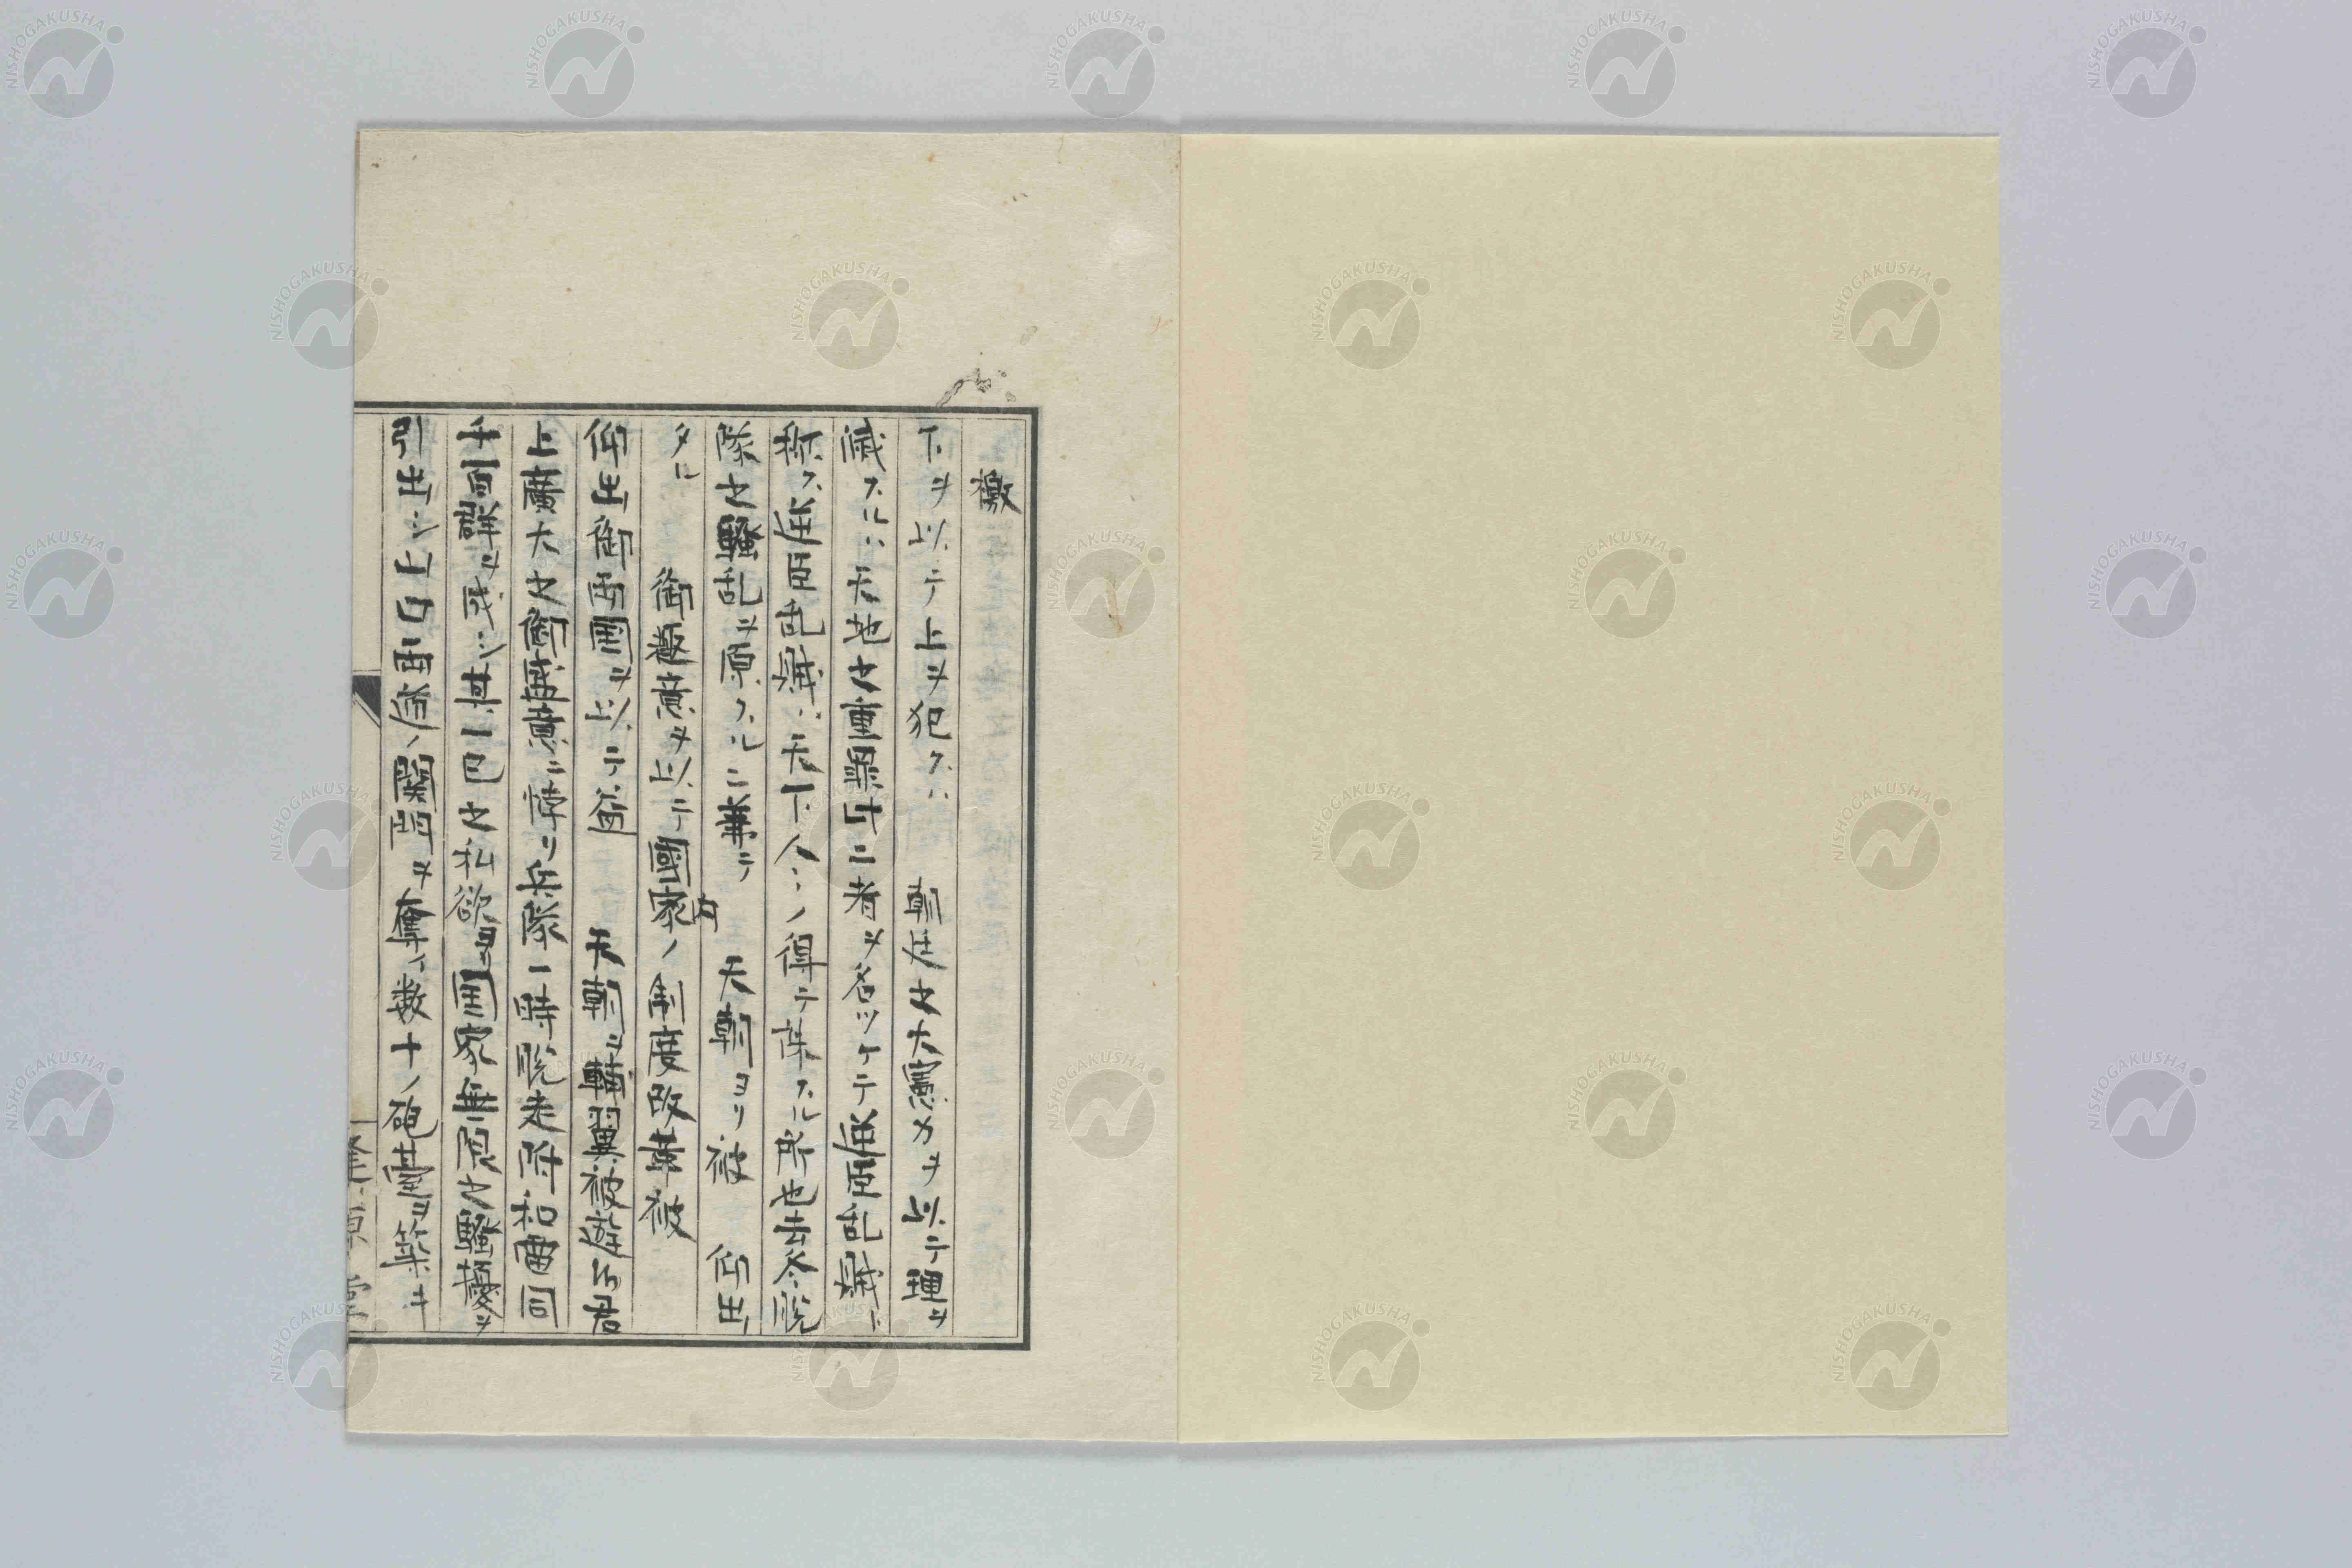 檄
下ヲ以テ上ヲ犯スハ 朝廷之大憲力ヲ以テ理ヲ
滅スルハ天地之重罪此二者ヲ名ツケテ逆臣乱賊ト
称ス逆臣乱賊ハ天下人々ノ得テ誅スル所也去冬脱
隊之騒乱ヲ原スルニ兼テ 天朝ヨリ被 仰出
タル 御趣意ヲ以テ國家ノ制度改革被
仰出御両国ヲ以テ益 天朝ヲ輔翼被遊候君
上廣大之御盛意ニ悖リ兵隊一時脱走附和雷同
千百群ヲ成シ其一己之私欲ヨリ国家無限之騒擾ヲ
引出シ山口一両道ノ関門ヲ奪ヒ数十ノ砲臺ヲ築キ
NISHOGAKUSHA